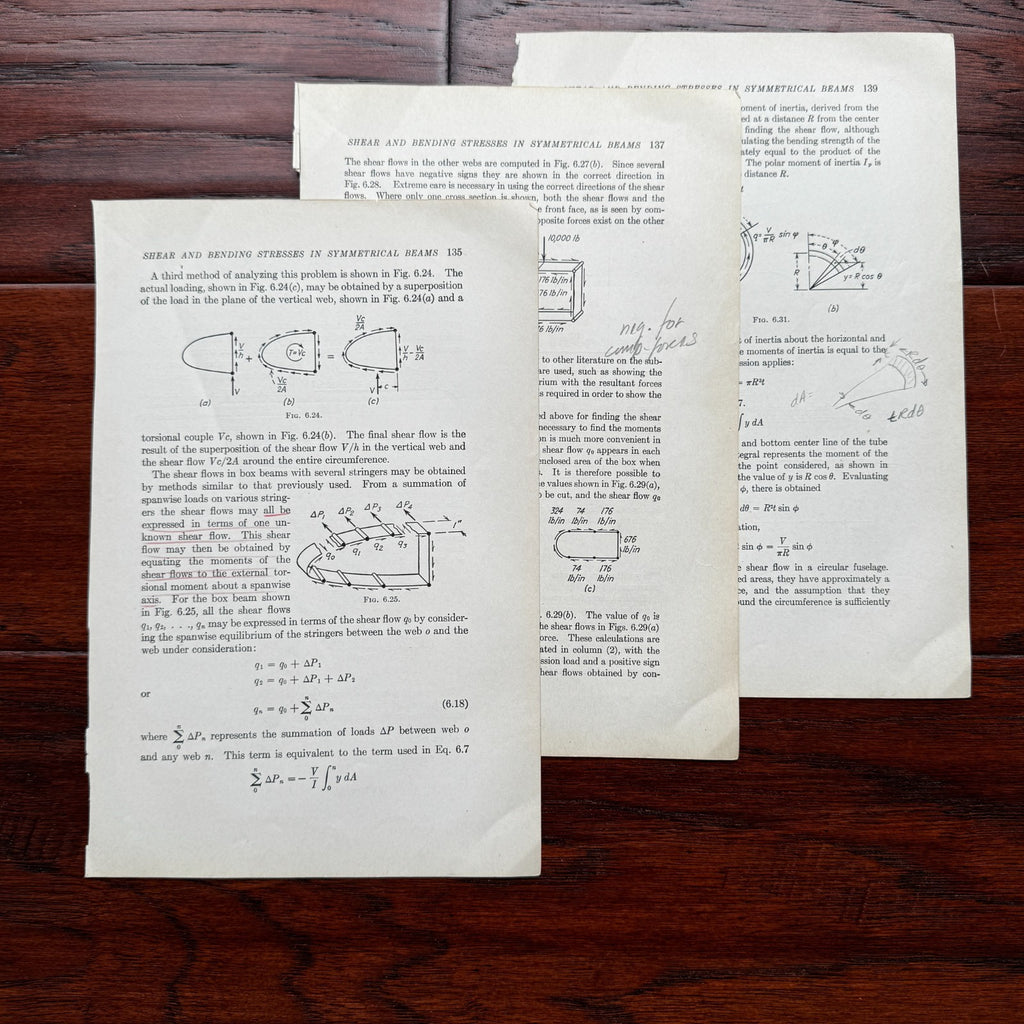 SHEAR AND BENDING STRESSES IN SYMMETRICAL BEAMS 135
A third method of analyzing this problem is shown in Fig. 6.24. The
actual loading, shown in Fig. 6.24(c), may be obtained by a superposition
of the load in the plane of the vertical web, shown in Fig. 6.24(a) and a
V/h
V
(a)
+
T=Vc
Vc/2A
(b)
=
Vc/2A
V/h - Vc/2A
V c
(c)
FIG. 6.24.
torsional couple Vc, shown in Fig. 6.24(b). The final shear flow is the
result of the superposition of the shear flow V/h in the vertical web and
the shear flow Vc/2A around the entire circumference.
The shear flows in box beams with several stringers may be obtained
by methods similar to that previously used. From a summation of
spanwise loads on various string-
ers the shear flows may all be
expressed in terms of one un-
known shear flow. This shear
flow may then be obtained by
equating the moments of the
shear flows to the external tor-
sional moment about a spanwise
axis. For the box beam shown
in Fig. 6.25, all the shear flows
ΔP₁ ΔP₂ ΔP₃ ΔP₄
1"
q₀ q₁ q₂ q₃
FIG. 6.25.
q₁, q₂, . . ., qₙ may be expressed in terms of the shear flow q₀ by consider-
ing the spanwise equilibrium of the stringers between the web o and the
web under consideration:
q₁ = q₀ + ΔP₁
q₂ = q₀ + ΔP₁ + ΔP₂
or
qₙ = q₀ + Σ₀ⁿ ΔPₙ (6.18)
where Σ₀ⁿ ΔPₙ represents the summation of loads ΔP between web o
and any web n. This term is equivalent to the term used in Eq. 6.7
Σ₀ⁿ ΔPₙ = − V/I ∫₀ⁿ y dA
SHEAR AND BENDING STRESSES IN SYMMETRICAL BEAMS 137
The shear flows in the other webs are computed in Fig. 6.27(b). Since several
shear flows have negative signs they are shown in the correct direction in
Fig. 6.28. Extreme care is necessary in using the correct directions of the shear
flows. Where only one cross section is shown, both the shear flows and the
e front face, as is seen by com-
pposite forces exist on the other
10,000 lb
176 lb/in
76 lb/in
6 lb/in
neg. for
comp. forces
to other literature on the sub-
are used, such as showing the
rium with the resultant forces
s required in order to show the
ed above for finding the shear
necessary to find the moments
on is much more convenient in
shear flow q₀ appears in each
enclosed area of the box when
. It is therefore possible to
e values shown in Fig. 6.29(a),
o be cut, and the shear flow q₀
324 74 176
lb/in lb/in lb/in
676
lb/in
74 176
lb/in lb/in
(c)
. 6.29(b). The value of q₀ is
he shear flows in Figs. 6.29(a)
orce. These calculations are
ated in column (2), with the
ssion load and a positive sign
hear flows obtained by con-
BENDING STRESSES IN SYMMETRICAL BEAMS 139
oment of inertia, derived from the
ed at a distance R from the center
finding the shear flow, although
ulating the bending strength of the
ately equal to the product of the
The polar moment of inertia Iₚ is
distance R.
t
q = V/πR sin φ
φ
θ
dθ
R
y = R cos θ
(b)
FIG. 6.31.
of inertia about the horizontal and
e moments of inertia is equal to the
ssion applies:
= πR³t
7.
∫ y dA
dA=
Rdθ
dθ
tRdθ
and bottom center line of the tube
egral represents the moment of the
the point considered, as shown in
the value of y is R cos θ. Evaluating
φ, there is obtained
dθ = R²t sin φ
ation,
sin φ = V/πR sin φ
e shear flow in a circular fuselage.
ed areas, they have approximately a
ce, and the assumption that they
ound the circumference is sufficiently